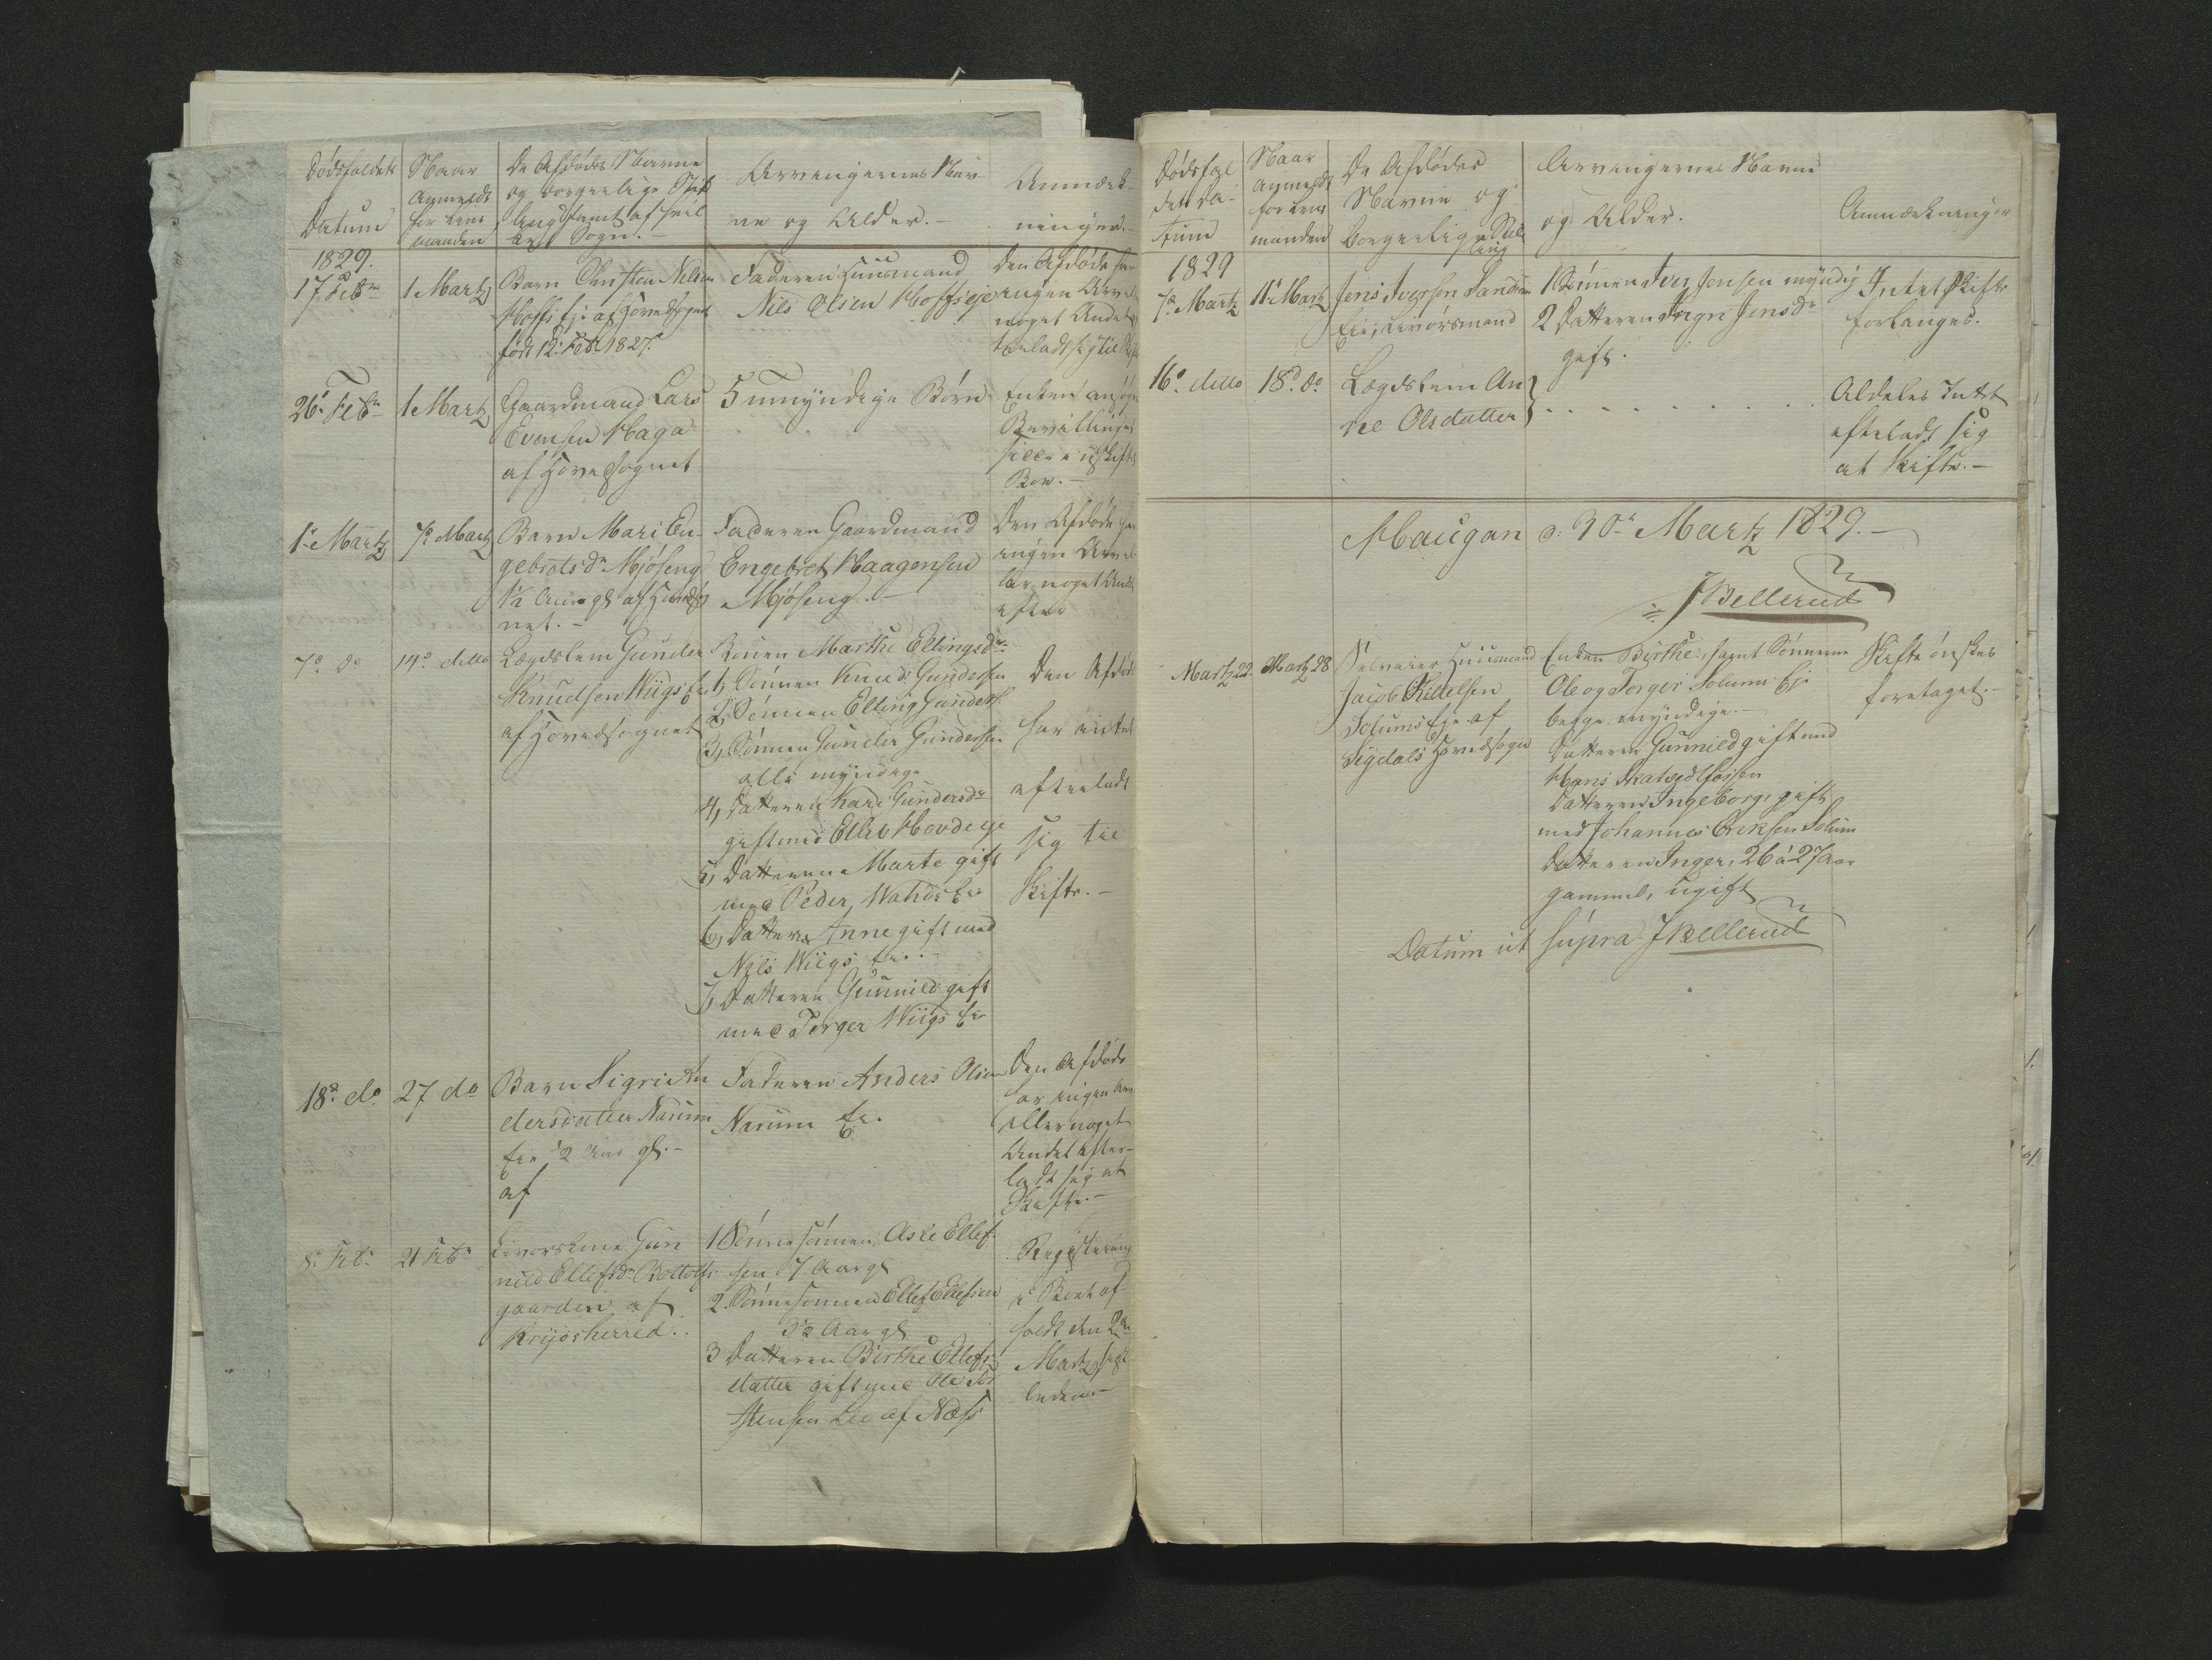 Dødsfaldets
Datum
Naar
anmeldt
for Lens
manden
De Afdødes Navne
og borgerlige Stil
ling samt af hvil
ket Sogn.
Arvingernes Nav
ne og Alder.
Anmærk
ninger.
1829.
17 Febr
1 Martz
Barn Christen Nilsen
Hoffs Eje af Hovedsognet
født 12 Feb 1827.
Faderen Huusmand
Nils Olsen Hoffseje
Den Afdøde har
ingen Arv eller
noget Andet
26 Febr
1 Martz
Gaardmand Lars
Evensen Haga
af Hovedsognet
5 umyndige Børn
Enken
Bevilling
Boe.
1 Martz
7 Martz
Barn Mari En
gebretsdr Mjøseng
1/2 Aar gl af Hovedsog
net.
Faderen Gaardmand
Engebret Haagensen
Mjøseng.
Den Afdøde har
ingen Arv el
ler noget Andet
efter
7 do
14 ditto
Lægdslem Gunder
Knudsen Wiigs Eie
af Hovedsognet
Konen Marthe Ellingsdr
1, Sønnen Knud Gundersen
2, Sønnen Elling Gunders.
3, Sønnen Gunder Gundersen
alle myndige
4, Datteren Kari Gundersdr
gift med Ellef Hovde eje
5, Datteren Marte gift
med Peder Eie
6, Datteren Anne gift med
Nils Wiigs Eie.
7, Datteren Gunnild gift
med Torger Wiigs Eie
Den Afdøde
har intet
efterladt
sig til
Skifte.
18 do
27 do
Barn Sigri An
dersdatter Narum
Eie 1/2 Aar gl.
af
Faderen Anders Olsen
Narum Eie
Den Afdøde
har ingen Arv
eller noget
Andet efter
ladt sig at
Skifte.
8 Feb.
21 Febr
Livørskone Gun
nild Ellefsdr Bottolfs
gaarden af
Krydsherred.
1 Sønnesønnen Asle Ellef
sen 7 Aar gl
2. Sønnesønnen Ellef Ellefsen
3 1/2 Aar gl
3 Datteren Birthe Ellefs
datter gift med Ole
stensen Lio af Næss
Registrering
i Boet af
holdt den 2den
Martz
leden
Dødsfal
dets Da
tum
Naar
anmeldt
for Lens
manden
De Afdødes
Navne og
borgerlige Stil
ling
Arvingernes Navne
og Alder.
Anmærkninger
1829
7 Martz
11 Martz
Jens Iversen
Eie, Livørsmand
1 Sønnen Iver Jensen myndig
2 Datteren Ingri Jensdr
gift.
Intet Skifte
forlanges.
16 ditto
18 do
Lægdslem An
ne Olsdatter
Aldeles Intet
efterladt sig
at Skifte.
Haugan d: 30 Martz 1829.
JBellerud
Martz 22.
Martz 28
Selveier Huusmand
Jacob Kittelsen
Solums Eje af
Sigdals Hovedsogn
Enken Birthe, samt Sønnerne
Ole og Torger Solums Eje
begge myndige.
Datteren Gunnild gift med
Hans
Datteren Ingeborg, gift
med Johannes Eriksen Solum
Datteren Inger, 26 á 27 Aar
gammel, ugift
Skifte ønskes
foretaget.
Datum ut supra JBellerud